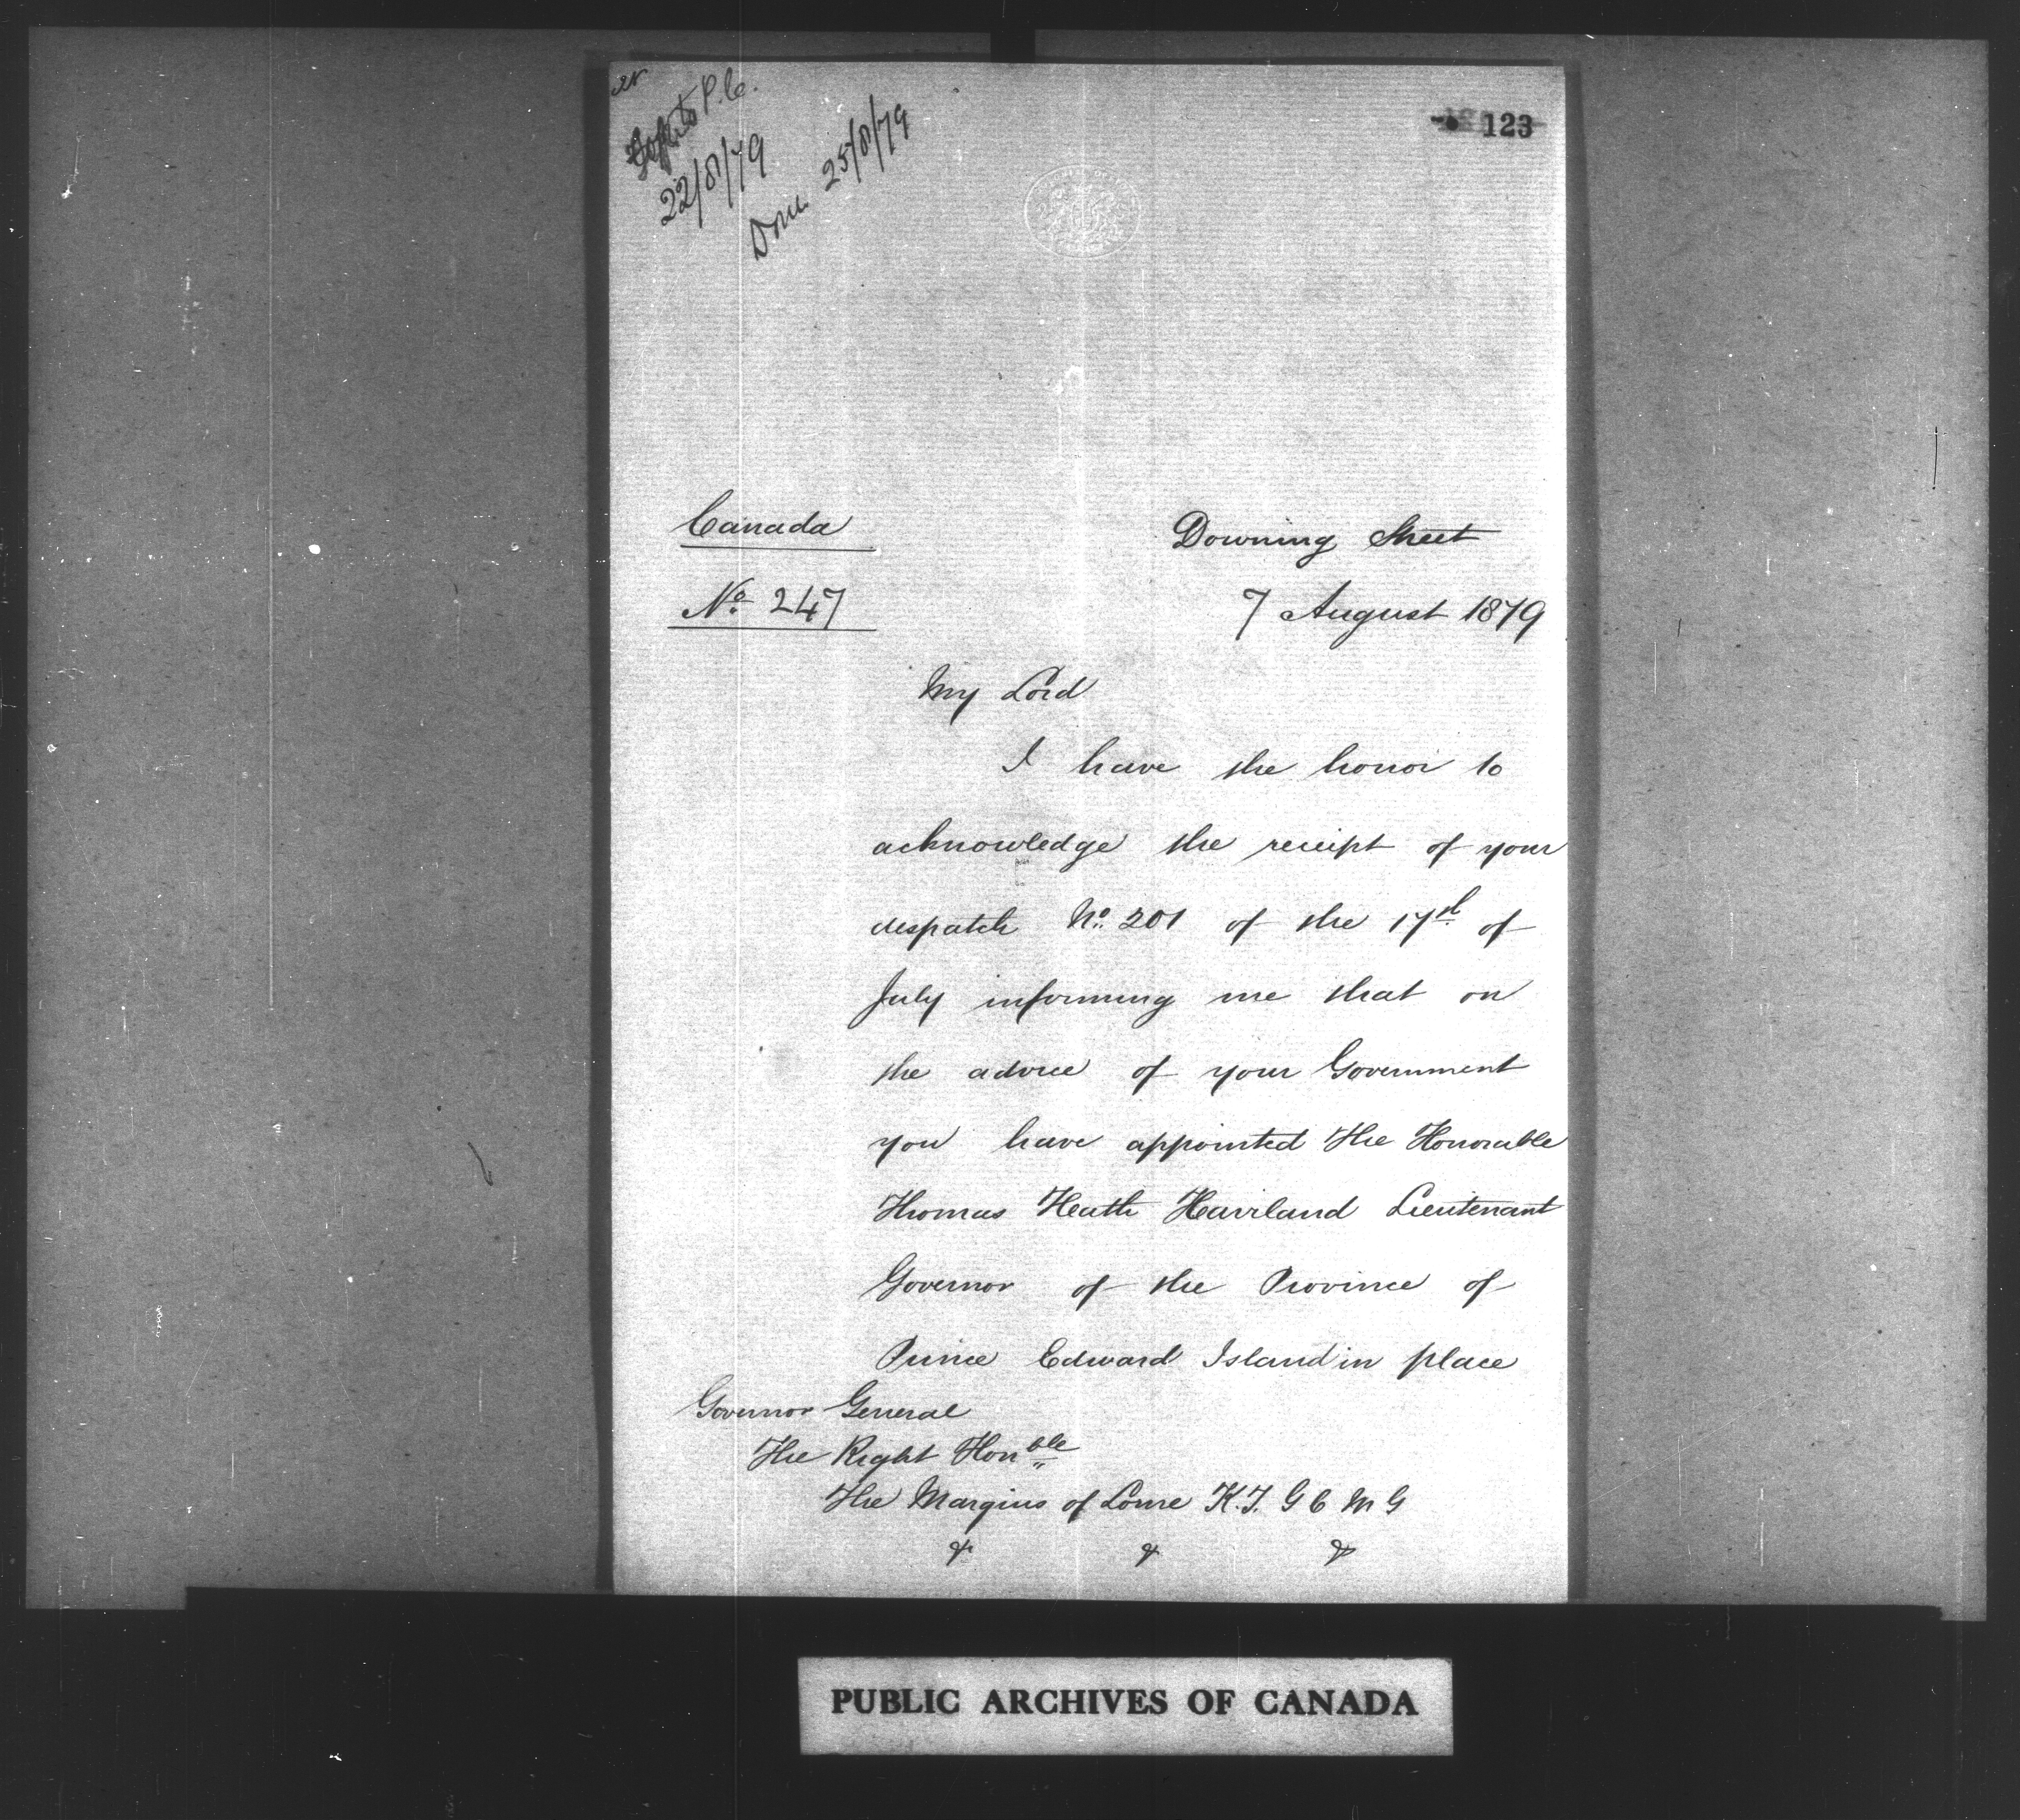 P.C.
22/8/79
25/8/79
123
Canada
Downing Street
No. 247
7 August 1879
My Lord
I have the honor to
acknowledge the receipt of your
despatch No. 201 of the 17th of
July informing me that on
the advice of your Government
you have appointed The Honorable
Thomas Heath Haviland Lieutenant
Governor of the Province of
Prince Edward Island in place
Governor General
The Right Honble
The Marquis of Lorne K.T. G C M G
& & &
PUBLIC ARCHIVES OF CANADA